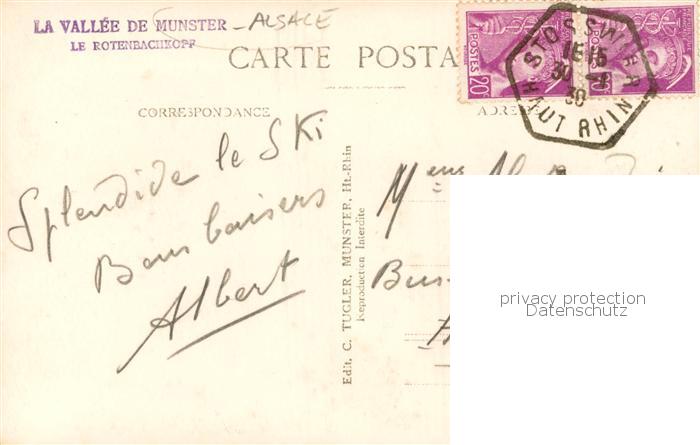 LA VALLÉE DE MUNSTER - ALSACE
LE ROTENBACHKOPF
CARTE POSTA
CORRESPONDANCE
ADRE
POSTES
20
STOSSWIHR
15
30
30
HAUT RHIN
Splendide le SKi
Bons baisers
Albert
Edit. C. TUGLER, MUNSTER, Ht.-Rhin
Reproduction Interdite
privacy protection
Datenschutz